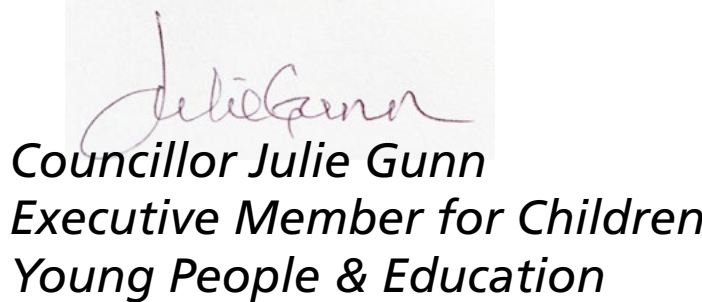 Julie Gunn
Councillor Julie Gunn
Executive Member for Children
Young People & Education